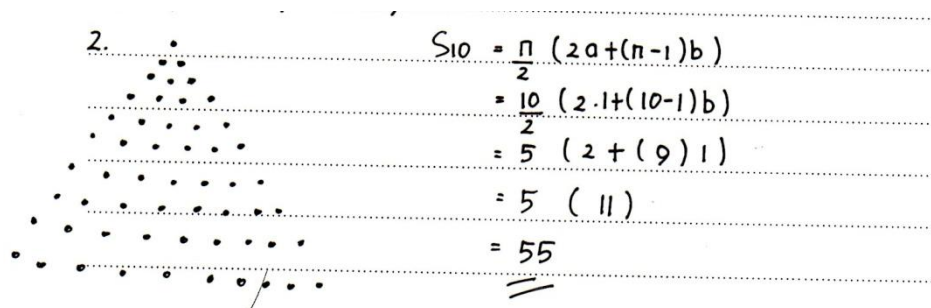 2.
S10 = n/2 (2a+(n-1)b)
= 10/2 (2.1+(10-1)b)
= 5 (2+(9)1)
= 5 (11)
= 55